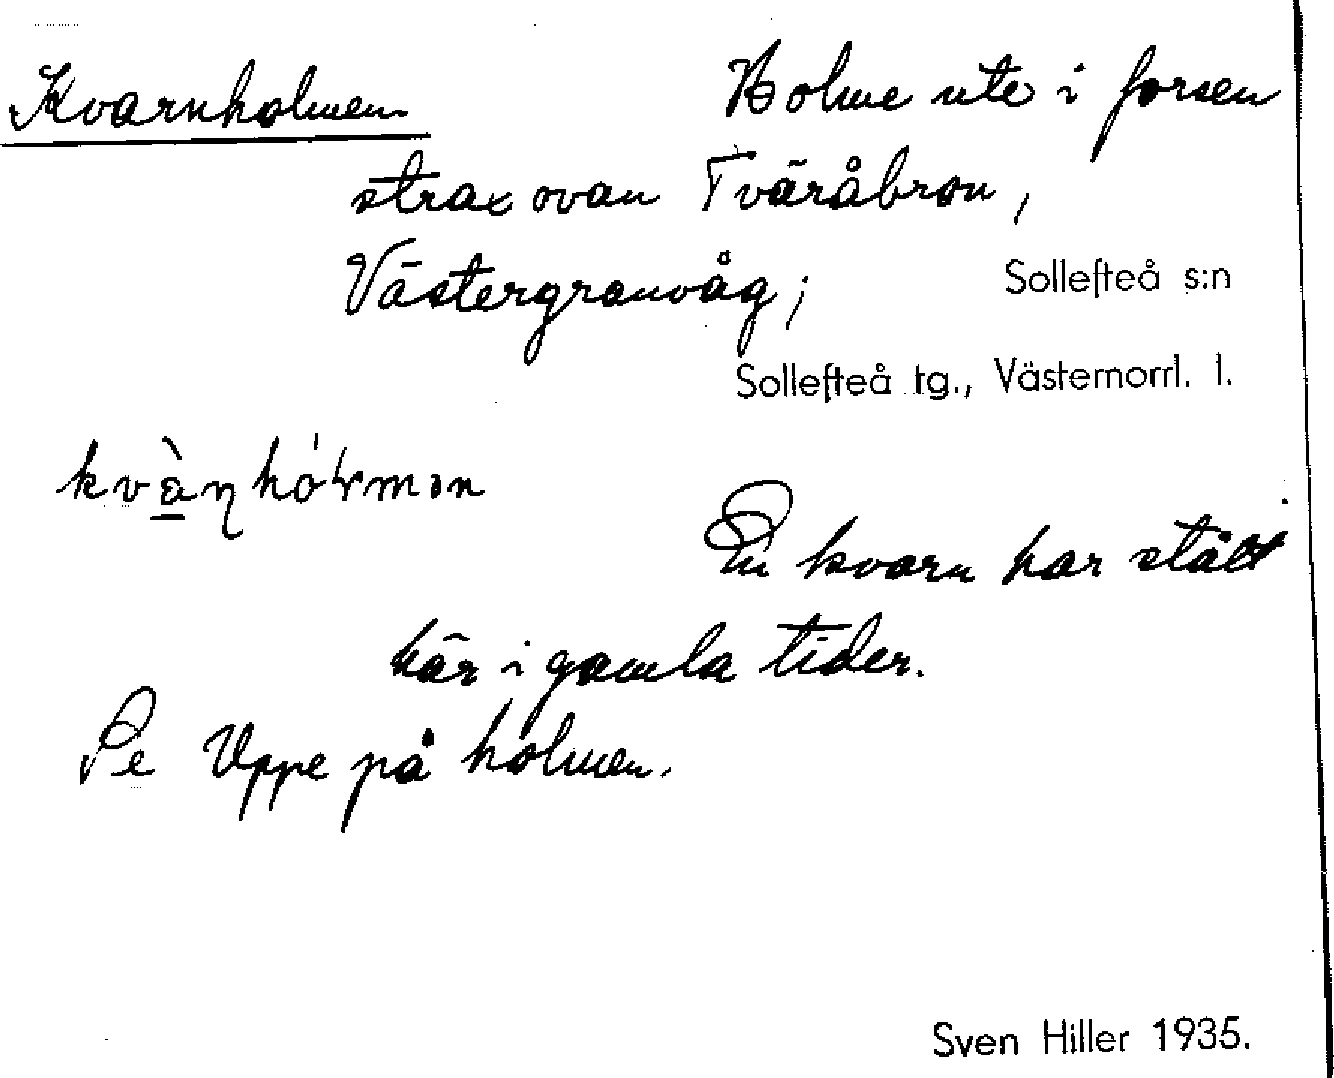 Kvarnholmen Holme ute i forsen
strax ovan Tväråbron,
Västergranvåg; Sollefteå s:n
Sollefteå tg., Västernorrl. l.
En kvarn har stått
här i gamla tider.
Pe Uppe på holmen.
Sven Hiller 1935.